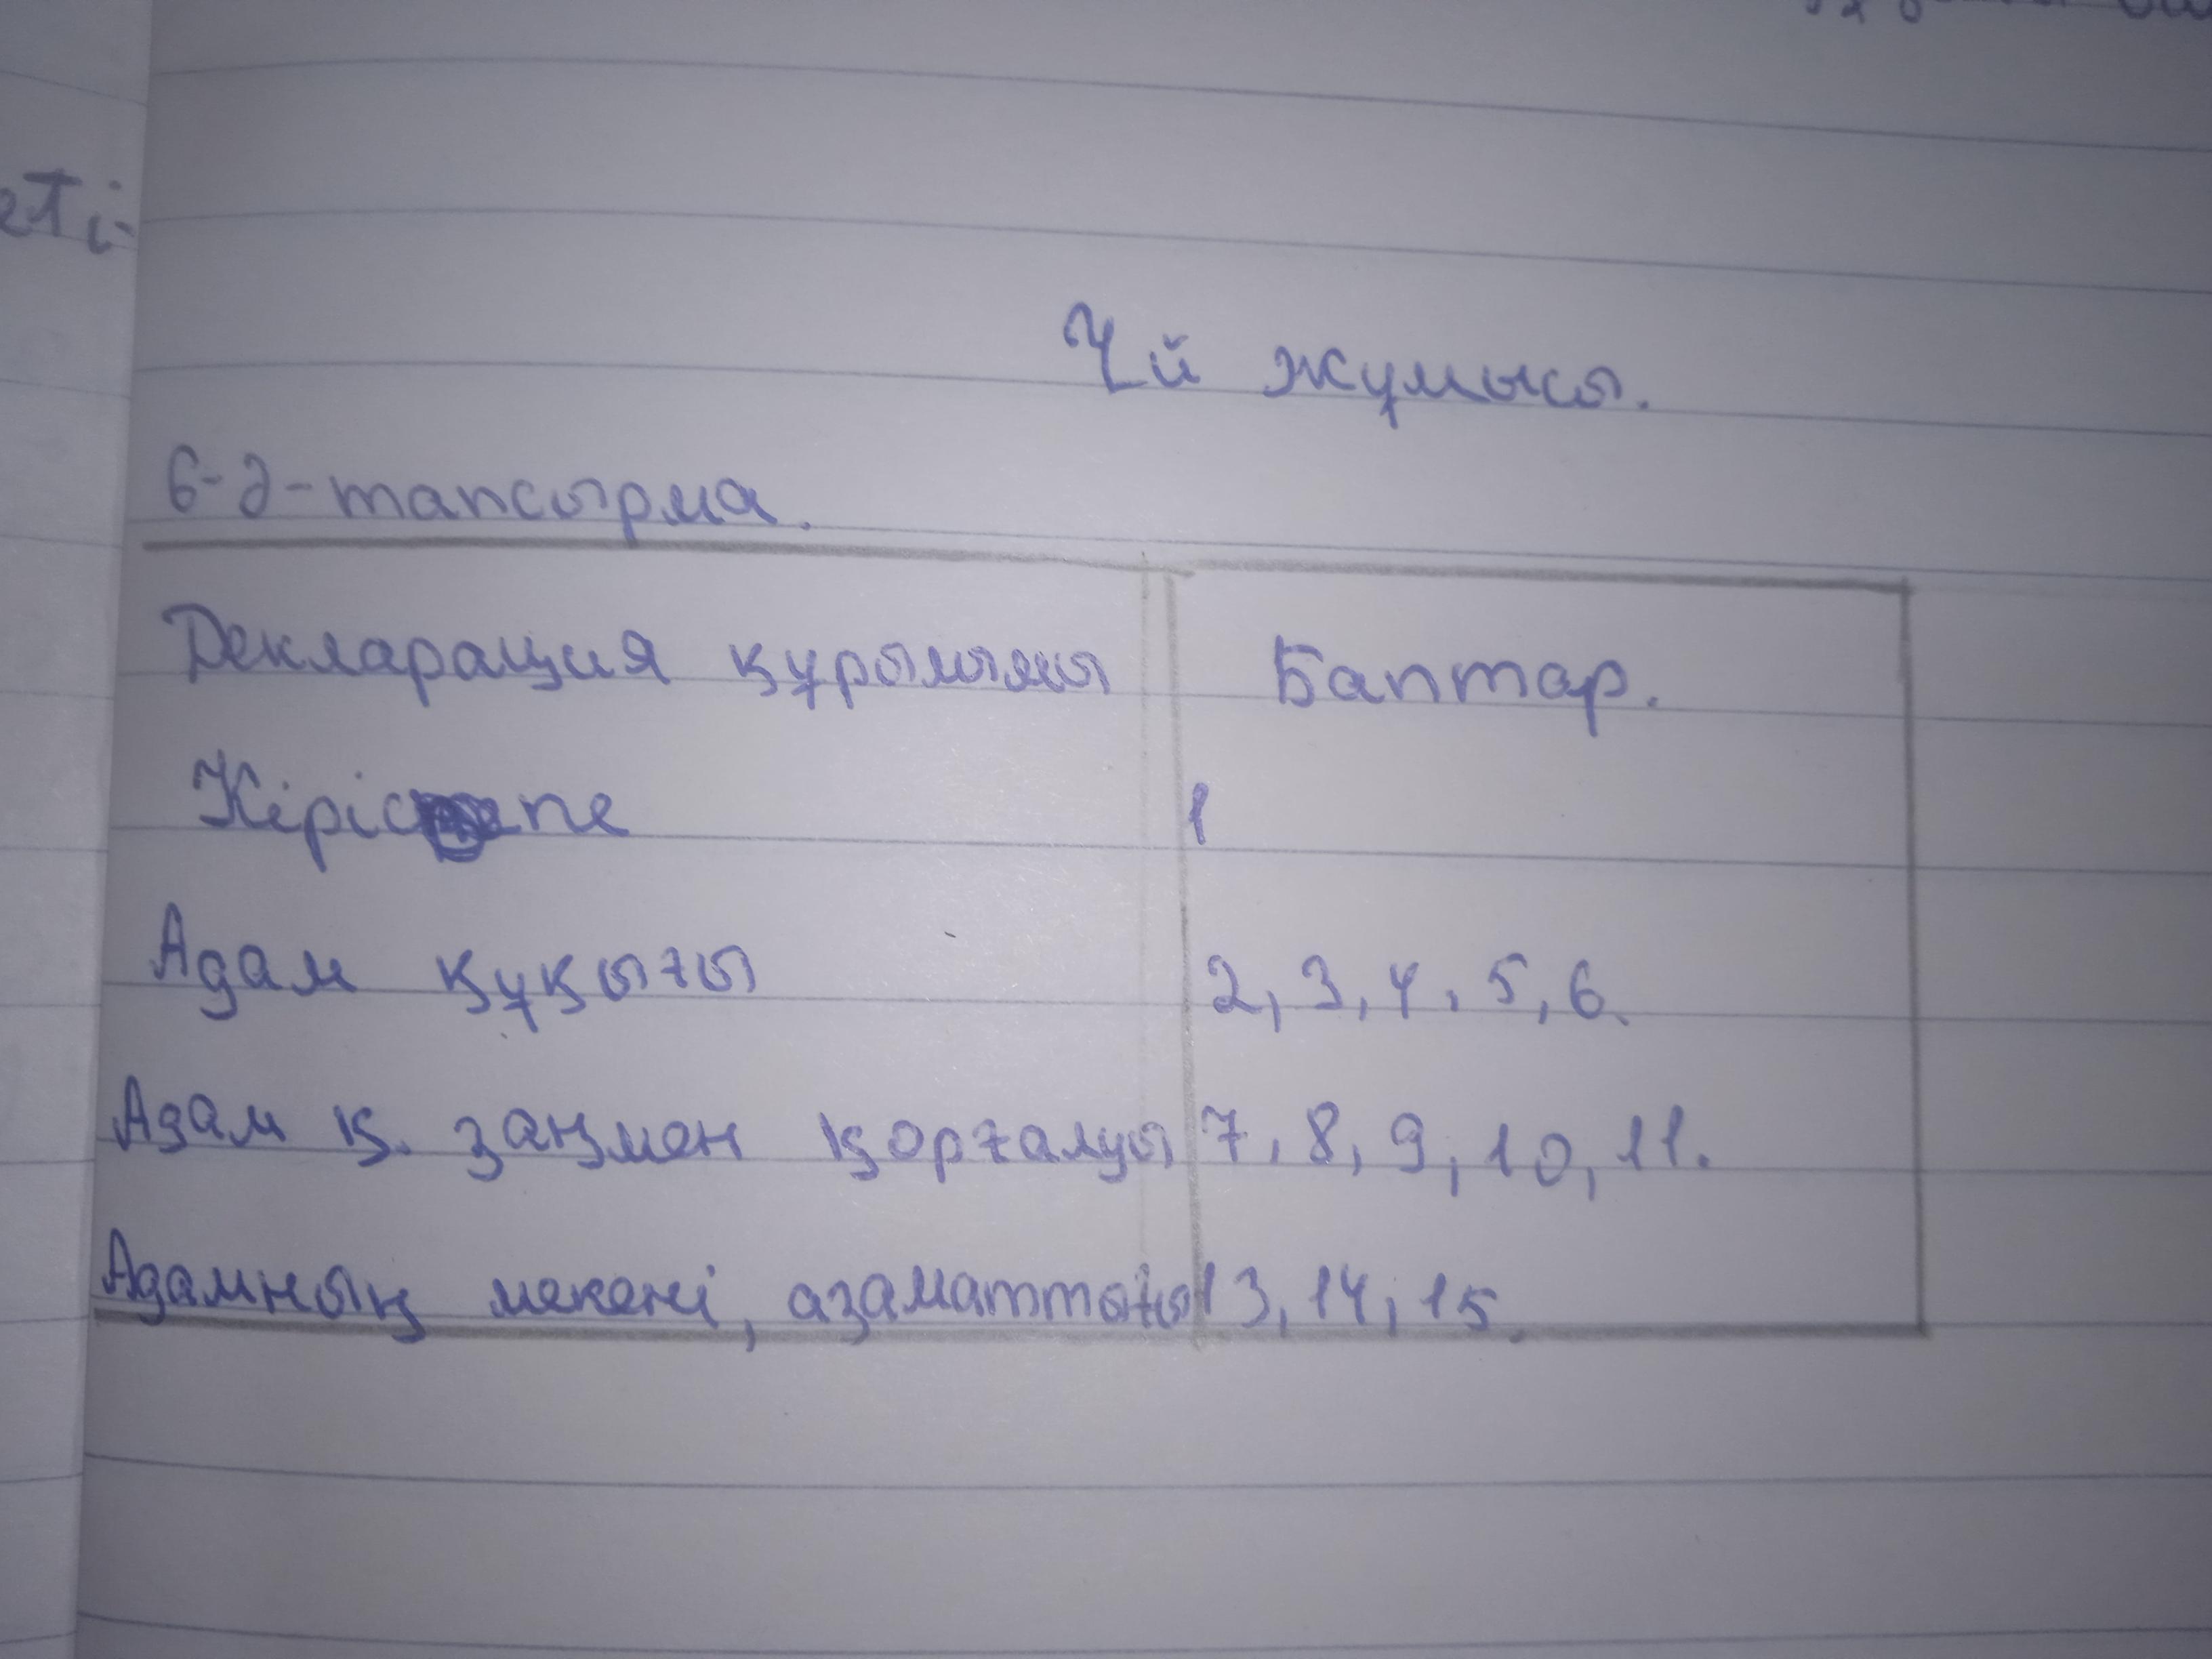 Үй жұмысы.
6-ә-тапсырма.
Декларация құрылымы Баптар.
Кіріспе 1
Адам құқығы 2, 3, 4, 5, 6.
Адам қ. заңмен қорғалуы 7, 8, 9, 10, 11.
Адамның мекені, азаматтығы 13, 14, 15.